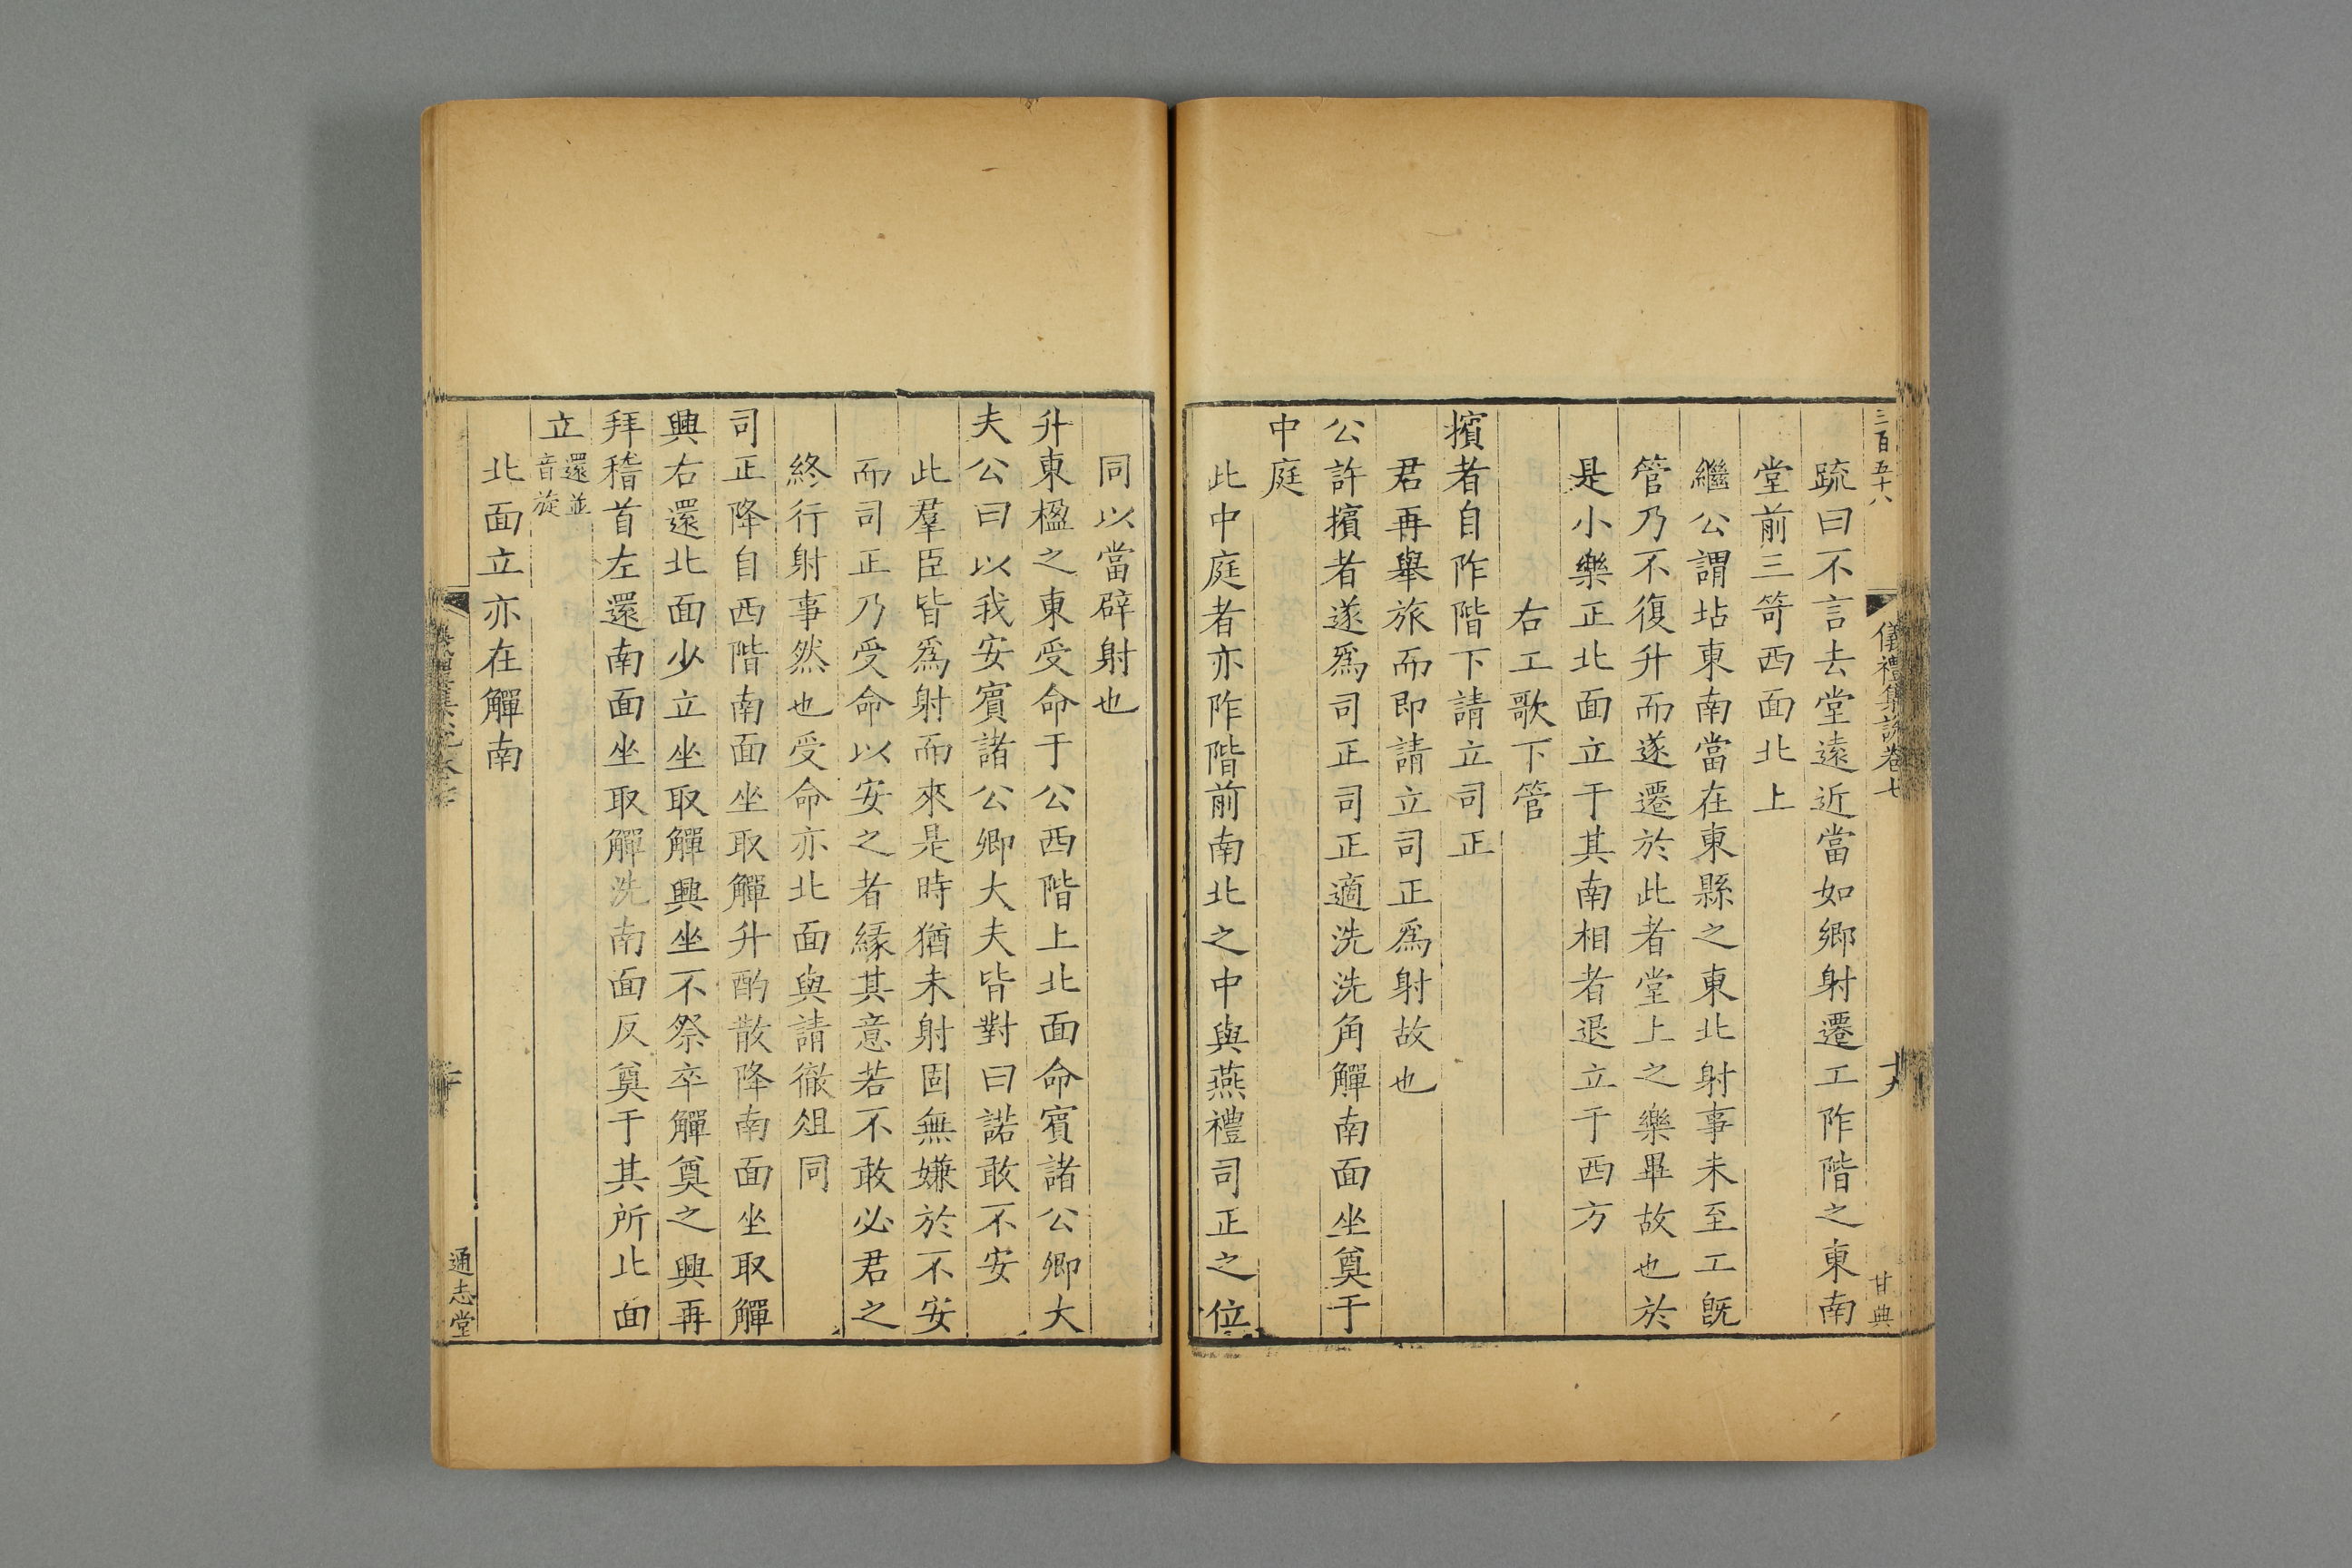 三百五十八
儀禮集說卷七
甘典
疏曰不言去堂遠近當如鄉射遷工阼階之東南
堂前三笴西面北上
繼公謂坫東南當在東縣之東北射事未至工旣
管乃不復升而遂遷於此者堂上之樂畢故也於
是小樂正北面立于其南相者退立于西方
右工歌下管
擯者自阼階下請立司正
君再舉旅而即請立司正爲射故也
公許擯者遂爲司正司正適洗洗角觶南面坐奠于
中庭
此中庭者亦阼階前南北之中與燕禮司正之位
同以當辟射也
升東楹之東受命于公西階上北面命賓諸公卿大
夫公曰以我安賓諸公卿大夫皆對曰諾敢不安
此羣臣皆爲射而來是時猶未射固無嫌於不安
而司正乃受命以安之者緣其意若不敢必君之
終行射事然也受命亦北面與請徹俎同
司正降自西階南面坐取觶升酌散降南面坐取觶
興右還北面少立坐取觶興坐不祭卒觶奠之興再
拜稽首左還南面坐取觶洗南面反奠于其所北面
立還並音旋
北面立亦在觶南
通志堂